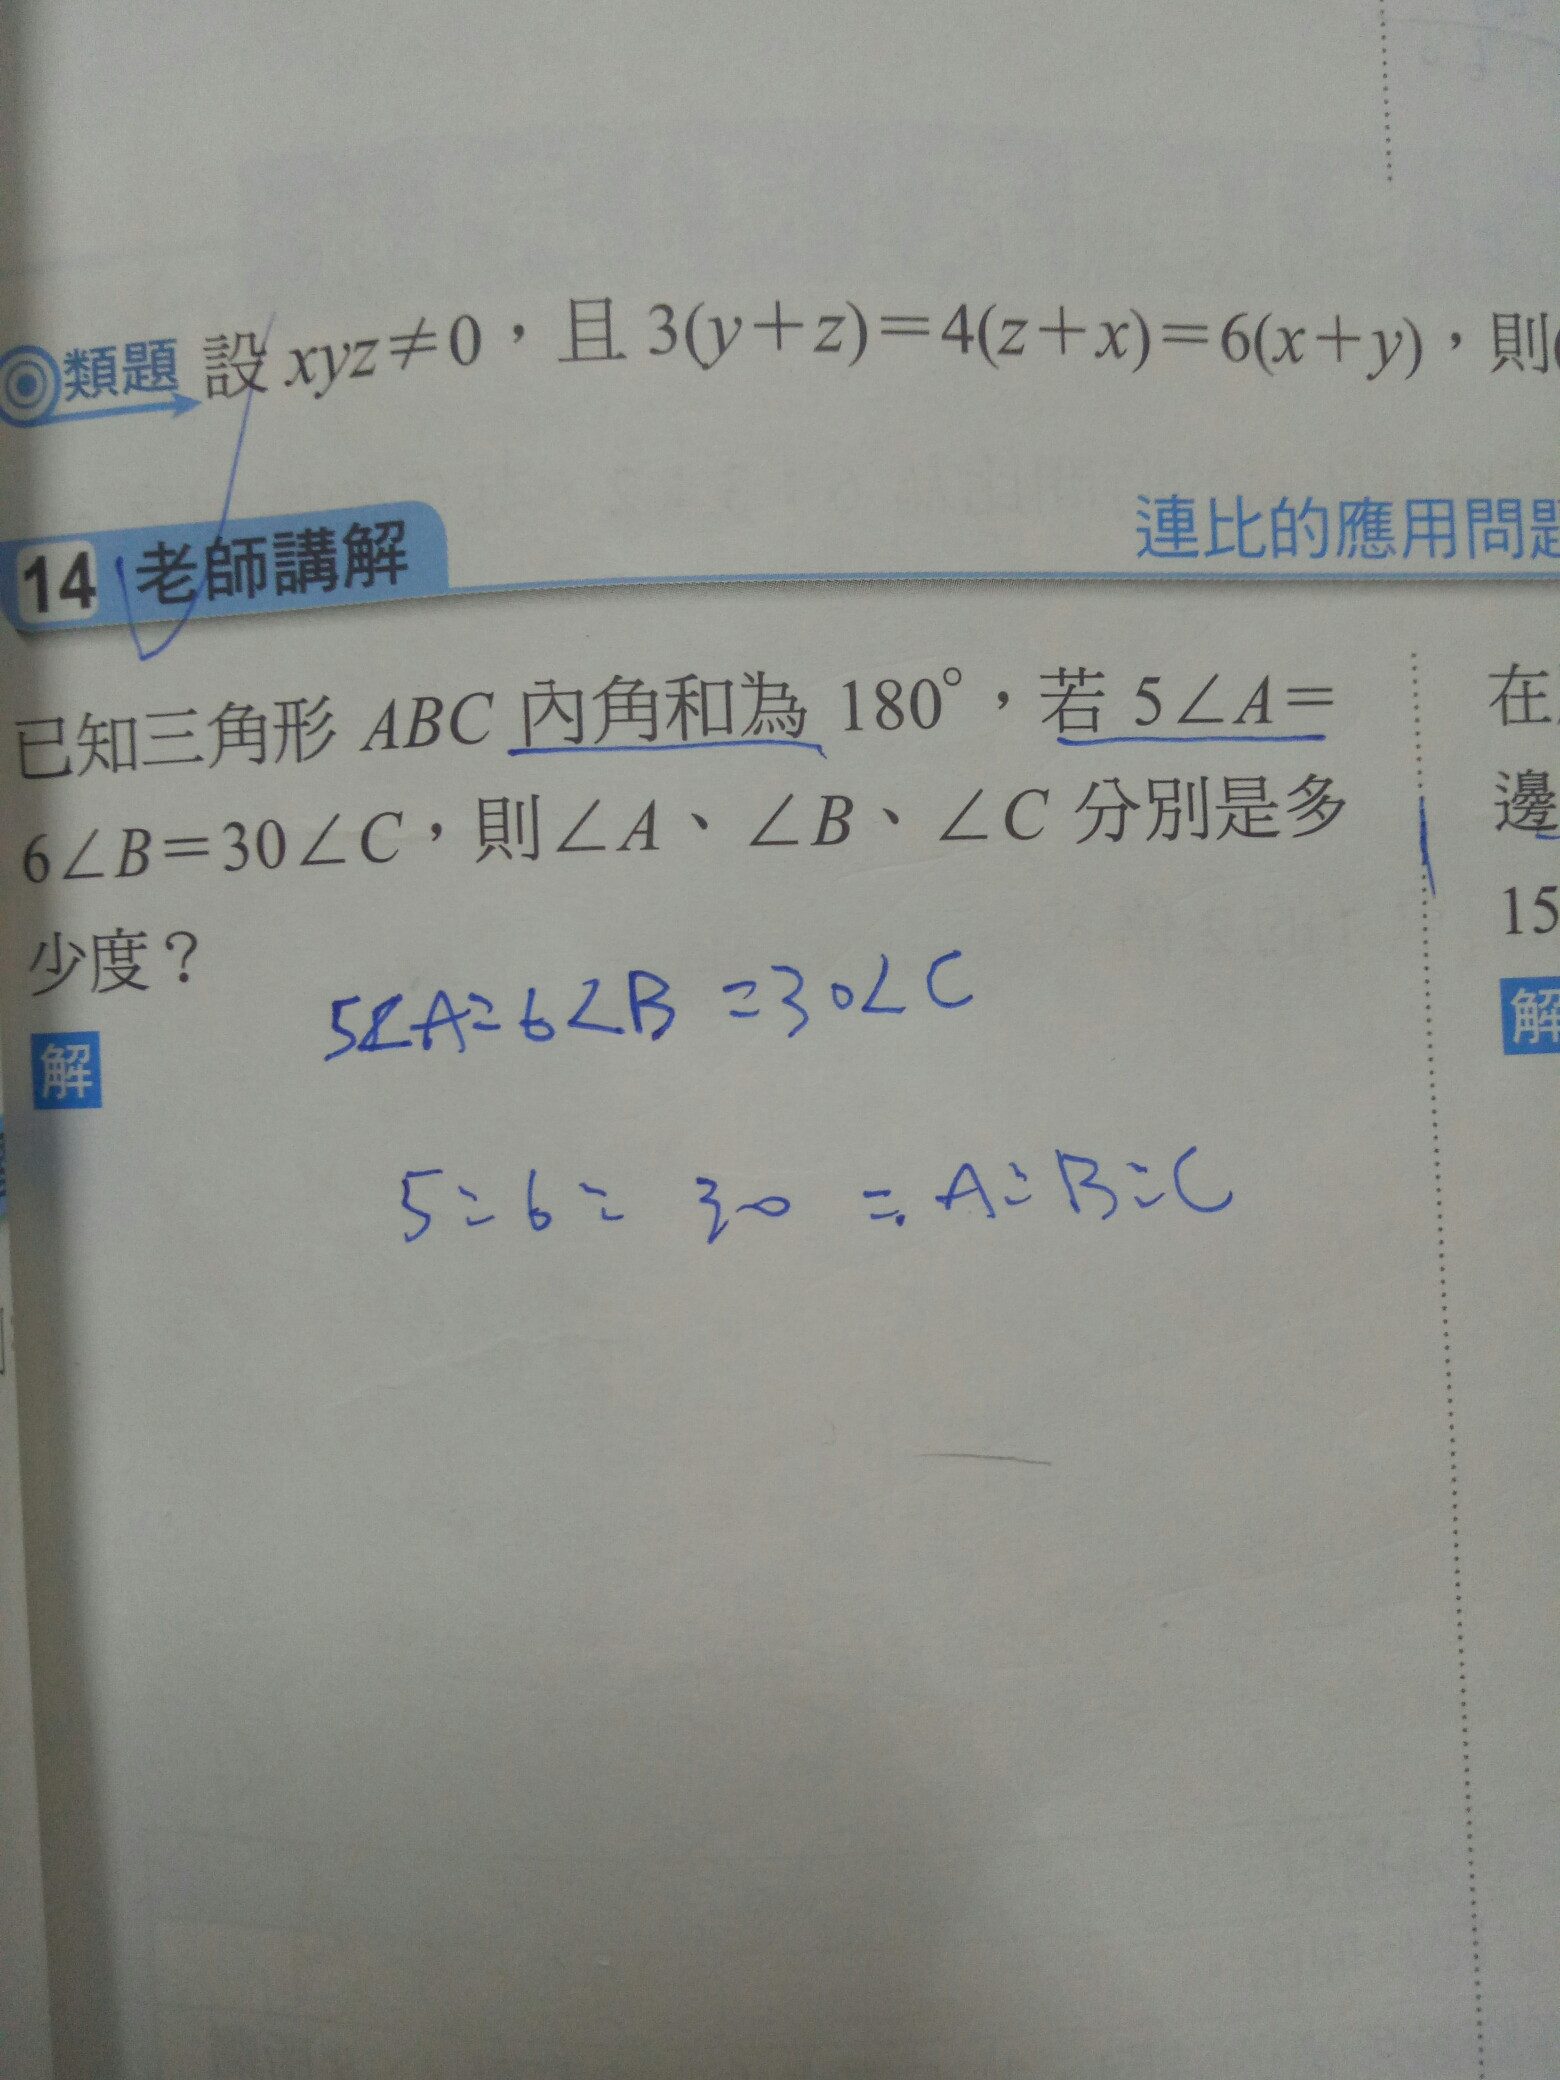 類題 設 xyz≠0，且 3(y+z)=4(z+x)=6(x+y)，則(
14 老師講解
連比的應用問題
已知三角形 ABC 內角和為 180°，若 5∠A=
6∠B=30∠C，則∠A、∠B、∠C 分別是多
少度？
解
5∠A=6∠B=30∠C
5:6:30=A:B:C
在
邊
15
解